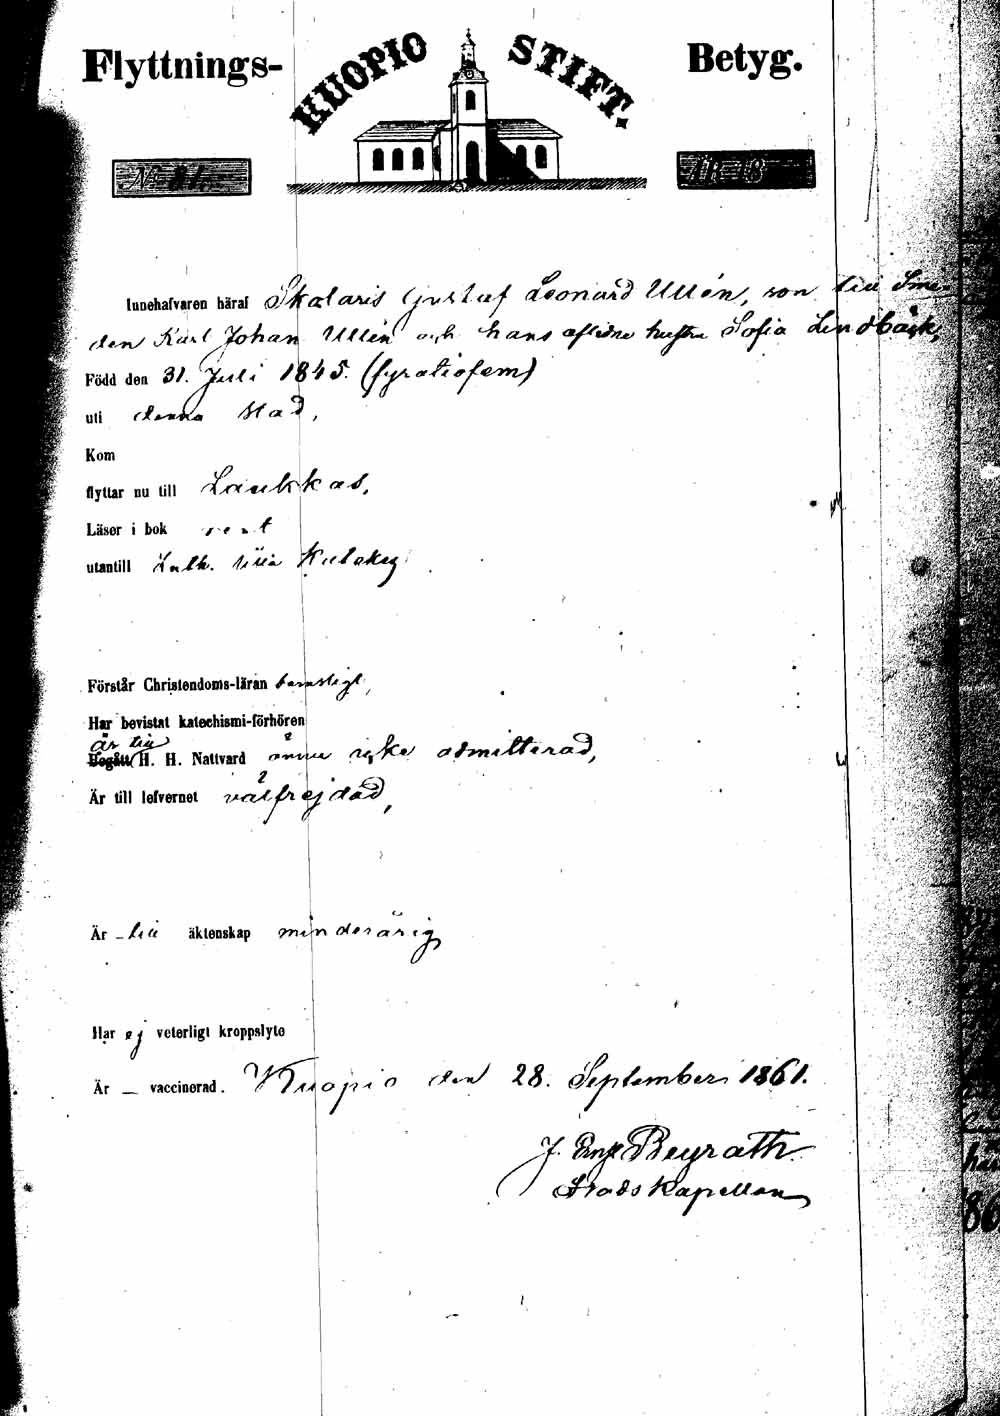 Flyttnings- KUOPIO STIFT. Betyg.
No 81. ÅR 18
Innehafvaren häraf Skolaris Gustaf Leonard Ullén, son till Sme-
den Karl Johan Ullén och hans aflidne hustru Sofia Lindbäck,
Född den 31. Juli 1845. (fyratiofem)
uti denna stad,
Kom
flyttar nu till Laukkas,
Läser i bok rent
utantill Luth. lilla
Förstår Christendoms-läran barnsligt,
Har bevistat katechismi-förhören
är till
Begått H. H. Nattvard ännu icke admitterad,
Är till lefvernet välfrejdad,
Är - till äktenskap minderårig,
Har ej veterligt kroppslyte
Är — vaccinerad. Kuopio den 28. September 1861.
J. Beyrath
Stadskapellan